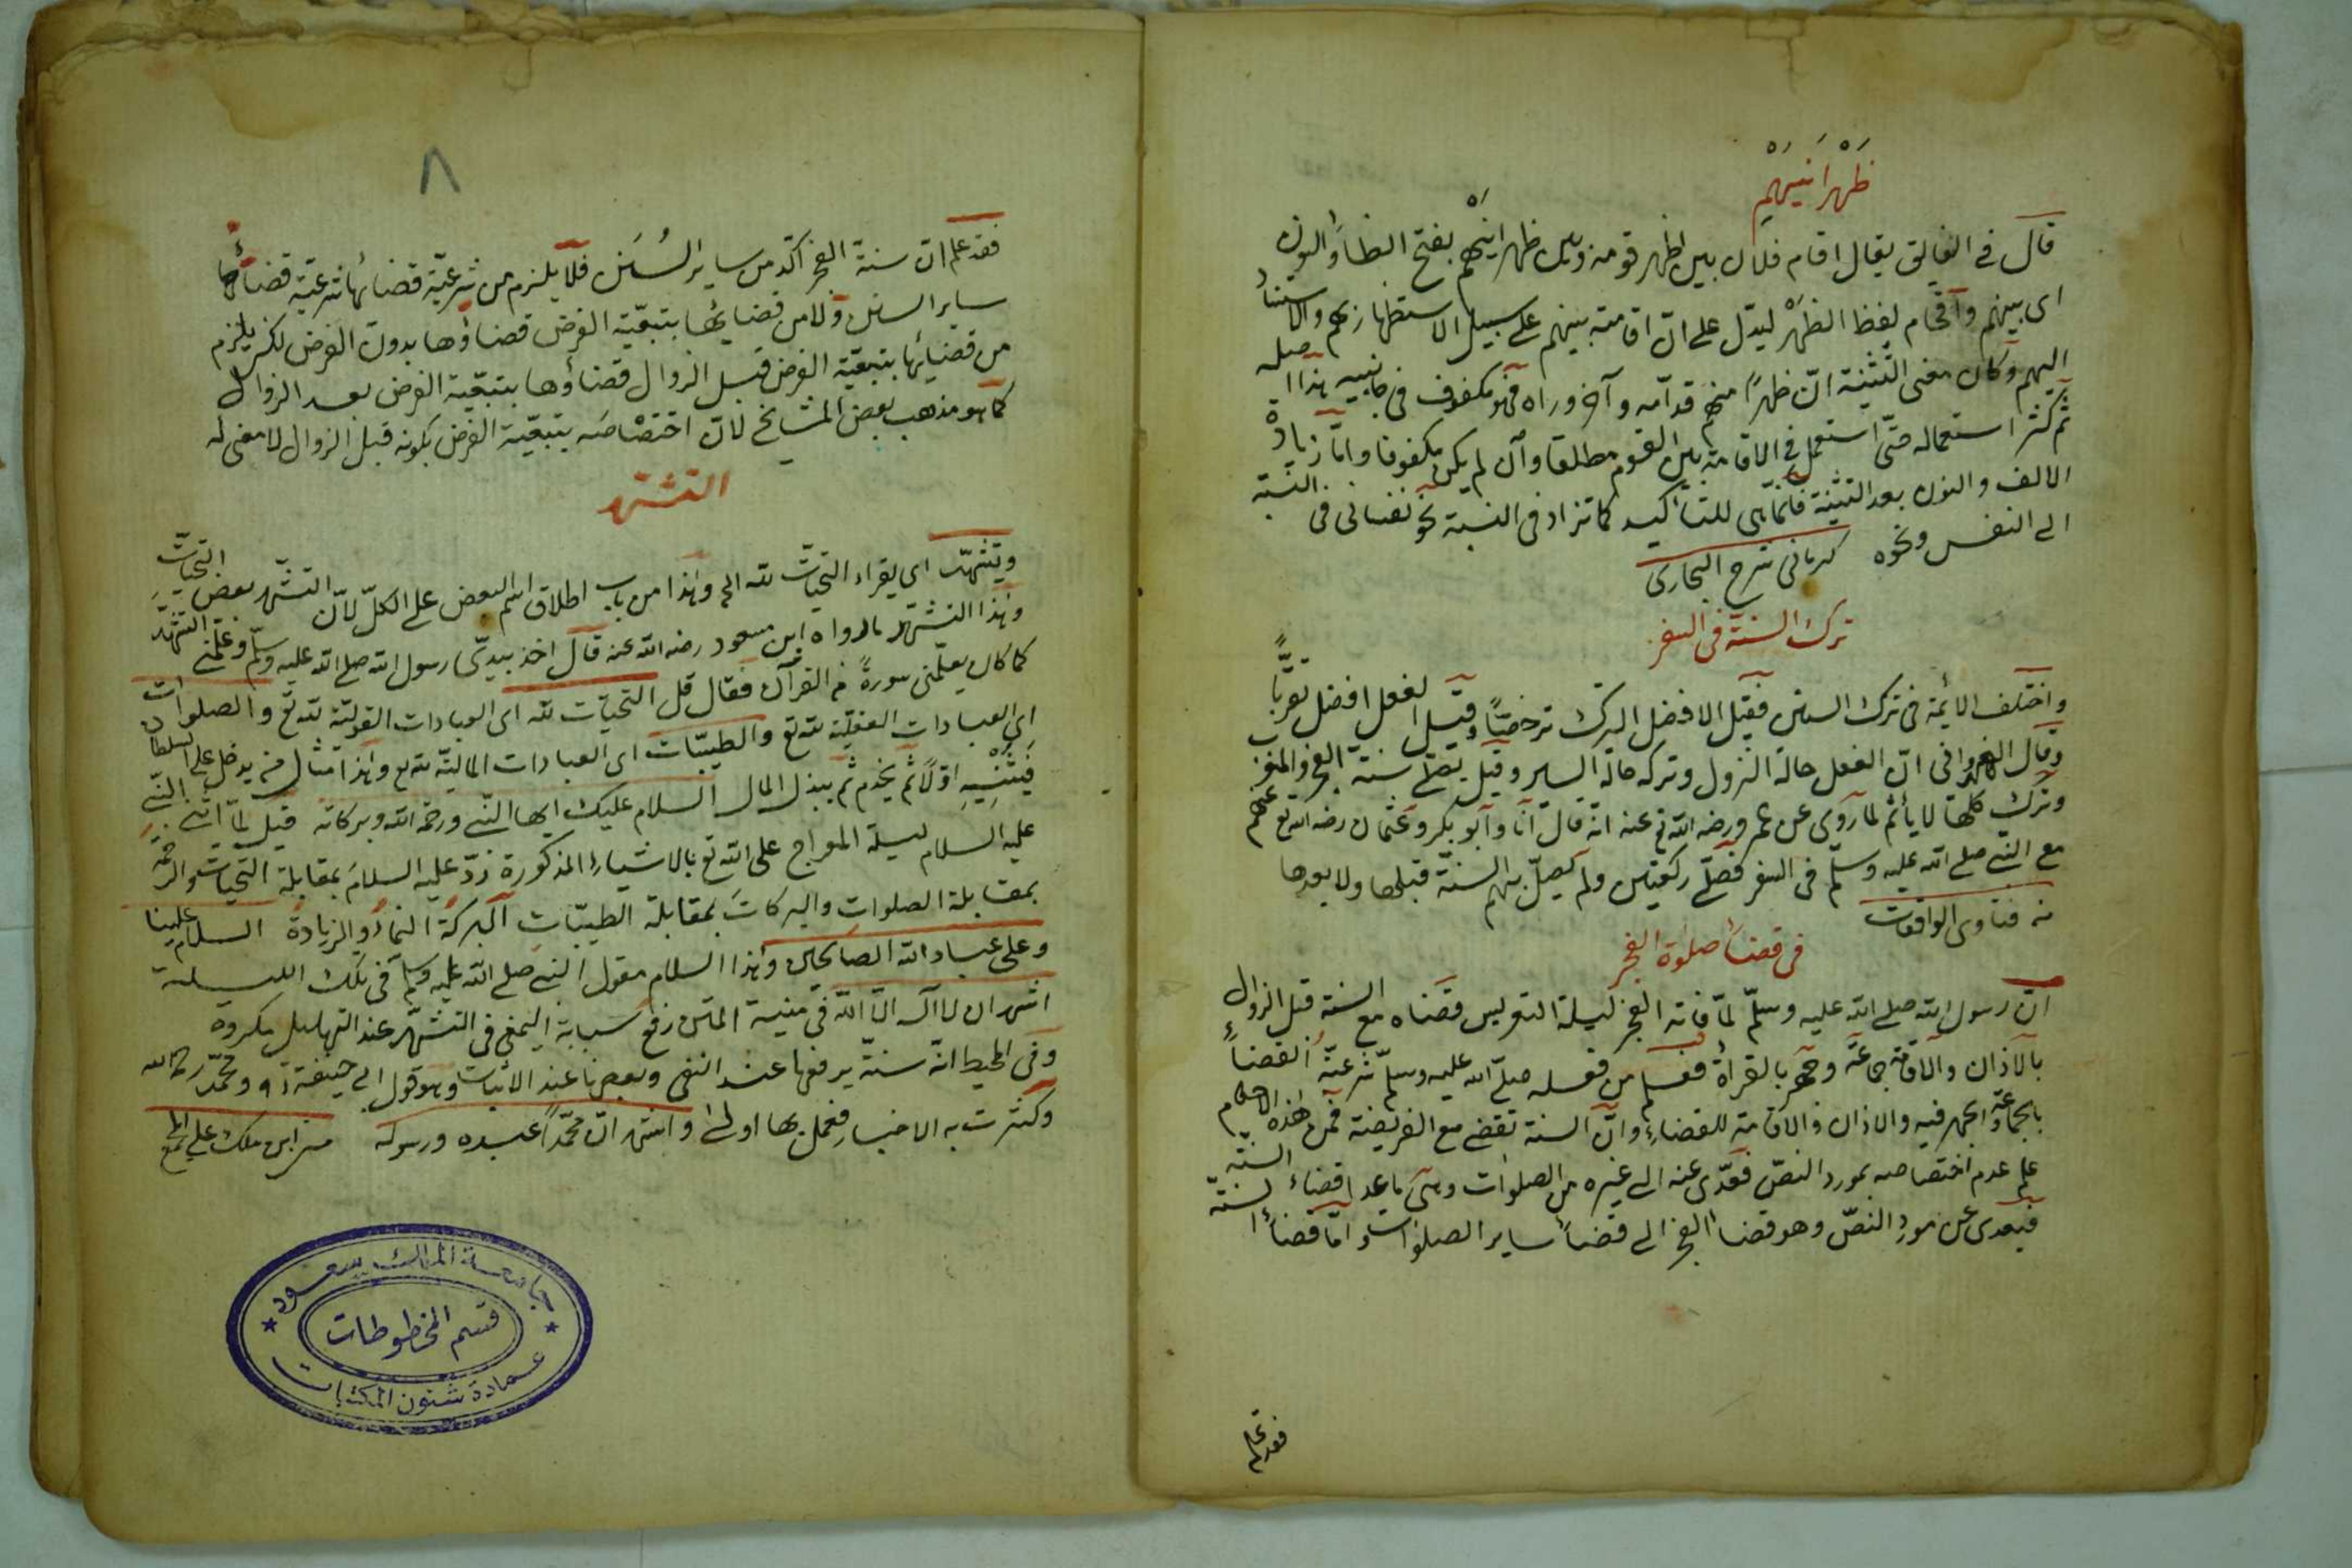 ظَهْرَانَيْهِمْ
قال في الفايق يقال اقام فلان بين اظهر قومه وبين ظهرانَيْهم بفتح الظاء والنون
اى بينهم واقحام لفظ الظهْر ليدل على انّ اقامته بينهم على سبيل الاستظهار بهم والاستناد
اليهم وكان معنى التثنية انّ ظهراً منهم قدامه وآخر وراه فهو مكفوف فى جانبيه هذا اصله
ثم كثر استعماله حتى استعمل فى الاقامة بين القوم مطلقا وان لم يكن مكفوفا واما زيادة
الالف والنون بعد التثنية فانما هى للتأكيد كما تزاد فى النسبة نحو نفسانى فى النسبة
الى النفس ونحوه كرمانى شرح البخارى
ترك السنة فى السفر
واختلف الائمة فى ترك السنن فقيل الافضل الترك ترخصًا وقيل الفعل افضل تقربًّا
وقال الهندوانى انّ الفعل حالة النزول وتركه حالة السير وقيل يصلى سنة الفجر والمغرب
وترك كلها لا يأثم لما روى عن عمر ورضى الله تع عنه انه قال انا وابو بكر وعثمان رضى الله تع عنهم
مع النبى صلى الله عليه وسلم فى السفر فصلّى ركعتين ولم يصلّ بهم السنّة قبلها ولا بعدها
من فتاوى الواقعات
فى قضاء صلوة الفجر
انّ رسول الله صلى الله عليه وسلّم لمّا فاته الفجر ليلة التعريس قضاه مع السنة قبل الزوال
بالاذان والاقامة جماعة وجهر بالقراءة فعلم من فعله صلى الله عليه وسلم شرعيّة القضاء
بالجماعة والجهر فيه والاذان والاقامة للقضاء وانّ السنة تقضى مع الفريضة فمن هذه الاحكام
علم عدم اختصاصه بمورد النصّ فعدّى عنه الى غيره من الصلوات وهى ما عدا قضاء السنة
فيعدى عن مورد النصّ وهو قضاء الفجر الى قضاء ساير الصلوات واما قضاء السنّة
فقد علم
٨
فقد علم ان سنة الفجر آكد من ساير السُنَن فلا يلزم من شرعيّة قضائها شرعيّة قضائها
ساير السنن ولا من قضايها بتبعيّة الفرض قضاؤها بدون الفرض لكن يلزم
من قضايها بتبعيّة الفرض قبل الزوال قضاؤها بتبعيّة الفرض بعد الزوال
كما هو مذهب بعض المشايخ لانّ اختصاصه بتبعيّة الفرض بكونه قبل الزوال لا معنى له
التشهد
ويتشهّد اى يقراء التحيات لله الخ وهذا من باب اطلاق اسم البعض على الكلّ لانّ التشهّد بعض التحيّات
وهذا التشهّد ما رواه ابن مسعود رضى الله عنه قال اخذ بيدى رسول الله صلى الله عليه وسلّم وعلّمنى التشهّد
كما كان يعلّمنى سورةً من القرآن فقال قل التحيّات لله اى العبادات القوليّة لله تع والصلوات
اى العبادات الفعليّة لله تع والطيبّات اى العبادات الماليّة لله تع وهذا مثال من يدخل على السلطان
فيثنيه اوّلاً ثم يخدم ثم يبذل المال السلام عليك ايها النّبى ورحمة الله وبركاته قيل لمّا اثنى النّبى
عليه السلام ليلة المعراج على الله تع بالاشياء المذكورة ردّ عليه السلامَ بمقابلة التحيات والرحمة
بمقابلة الصلوات والبركات بمقابلة الطيبّات البركة النماء والزيادة السلام علينا
وعلى عباد الله الصالحين وهذا السلام مقول النبى صلى الله عليه وسلم فى تلك الليلة
اشهد ان لا اله الّا الله فى منية المتن رفع سبابة اليمنى فى التشهّد عند التهليل مكروه
وفى المحيط انّه سنّة يرفعها عند النفى ويضعها عند الاثبات وهو قول ابى حنيفة ره ومحمّد رحمه الله
وكثرت به الاخبار فعمل بها اولى واشهد انّ محمّدًا عبده ورسوله من ابن ملك على المجمع
جامعة الملك سعود
قسم المخطوطات
عمادة شئون المكتبات